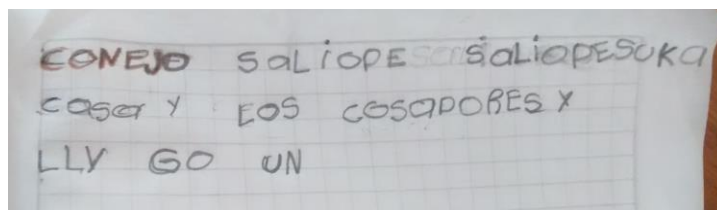 CONEJO SALiOPE SALiOPESUKA
casa Y LOS COSADORES Y
LLY GO UN